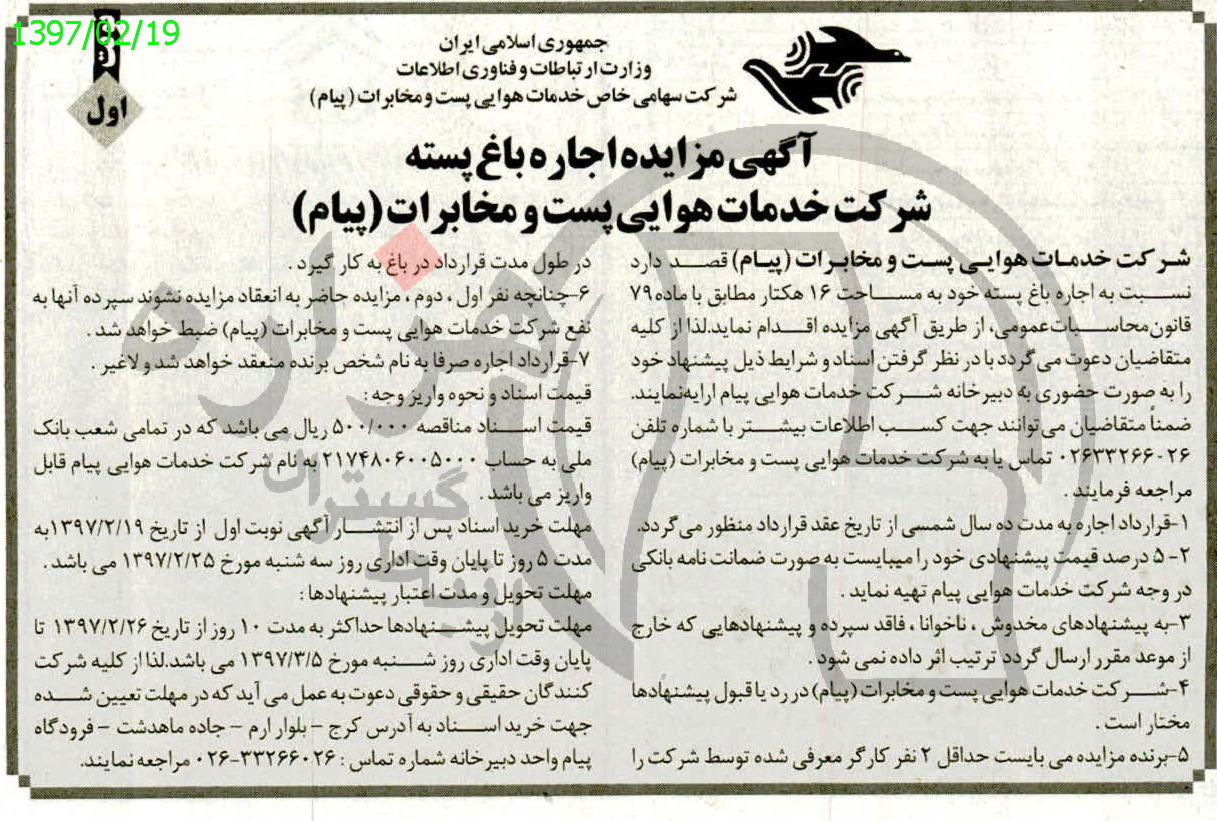 1397/02/19
نوبت
اول
جمهوری اسلامی ایران
وزارت ارتباطات و فناوری اطلاعات
شرکت سهامی خاص خدمات هوایی پست و مخابرات (پیام)
آگهی مزایده اجاره باغ پسته
شرکت خدمات هوایی پست و مخابرات (پیام)
شرکت خدمات هوایی پست و مخابرات (پیام) قصد دارد
نسبت به اجاره باغ پسته خود به مساحت ۱۶ هکتار مطابق با ماده ۷۹
قانون محاسبات عمومی، از طریق آگهی مزایده اقدام نماید.لذا از کلیه
متقاضیان دعوت می گردد با در نظر گرفتن اسناد و شرایط ذیل پیشنهاد خود
را به صورت حضوری به دبیرخانه شرکت خدمات هوایی پیام ارایه‌نمایند.
ضمناً متقاضیان می توانند جهت کسب اطلاعات بیشتر با شماره تلفن
۰۲۶۳۳۲۶۶۰۲۶ تماس یا به شرکت خدمات هوایی پست و مخابرات (پیام)
مراجعه فرمایند .
۱-قرارداد اجاره به مدت ده سال شمسی از تاریخ عقد قرارداد منظور می گردد.
۲- ۵ درصد قیمت پیشنهادی خود را میبایست به صورت ضمانت نامه بانکی
در وجه شرکت خدمات هوایی پیام تهیه نماید .
۳-به پیشنهادهای مخدوش ، ناخوانا ، فاقد سپرده و پیشنهادهایی که خارج
از موعد مقرر ارسال گردد ترتیب اثر داده نمی شود .
۴-شرکت خدمات هوایی پست و مخابرات (پیام) در رد یا قبول پیشنهادها
مختار است .
۵-برنده مزایده می بایست حداقل ۲ نفر کارگر معرفی شده توسط شرکت را
در طول مدت قرارداد در باغ به کار گیرد .
۶-چنانچه نفر اول ، دوم ، مزایده حاضر به انعقاد مزایده نشوند سپرده آنها به
نفع شرکت خدمات هوایی پست و مخابرات (پیام) ضبط خواهد شد .
۷-قرارداد اجاره صرفا به نام شخص برنده منعقد خواهد شد و لاغیر .
قیمت اسناد و نحوه واریز وجه :
قیمت اسناد مناقصه ۵۰۰/۰۰۰ ریال می باشد که در تمامی شعب بانک
ملی به حساب ۲۱۷۴۸۰۶۰۰۵۰۰۰ به نام شرکت خدمات هوایی پیام قابل
واریز می باشد .
مهلت خرید اسناد پس از انتشار آگهی نوبت اول از تاریخ ۱۳۹۷/۲/۱۹به
مدت ۵ روز تا پایان وقت اداری روز سه شنبه مورخ ۱۳۹۷/۲/۲۵ می باشد .
مهلت تحویل و مدت اعتبار پیشنهادها :
مهلت تحویل پیشنهادها حداکثر به مدت ۱۰ روز از تاریخ ۱۳۹۷/۲/۲۶ تا
پایان وقت اداری روز شنبه مورخ ۱۳۹۷/۳/۵ می باشد.لذا از کلیه شرکت
کنندگان حقیقی و حقوقی دعوت به عمل می آید که در مهلت تعیین شده
جهت خرید اسناد به آدرس کرج - بلوار ارم - جاده ماهدشت - فرودگاه
پیام واحد دبیرخانه شماره تماس : ۳۳۲۶۶۰۲۶-۰۲۶ مراجعه نمایند.
هزاره
گستران